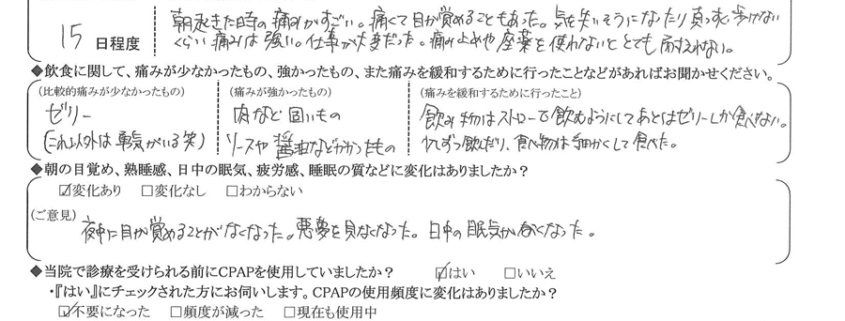 朝起きた時の痛みがすごい。痛くて目が覚めることもあった。気を失いそうになったり真っすぐ歩けない
15 日程度 くらい痛みは強い。仕事が大変だった。痛み止めや座薬を使わないととても耐えれない。
◆飲食に関して、痛みが少なかったもの、強かったもの、また痛みを緩和するために行ったことなどがあればお聞かせください。
(比較的痛みが少なかったもの) (痛みが強かったもの) (痛みを緩和するために行ったこと)
ゼリー 肉など固いもの 飲み物はストローで飲むようにしてあとはゼリーしか食べない。
(これ以外は勇気がいる笑) ソースや醤油などかかったもの 少しずつ飲んだり、食べ物は細かくして食べた。
◆朝の目覚め、熟睡感、日中の眠気、疲労感、睡眠の質などに変化はありましたか?
☑変化あり □変化なし □わからない
(ご意見)
夜中に目が覚めることがなくなった。悪夢を見なくなった。日中の眠気がなくなった。
◆当院で診療を受けられる前にCPAPを使用していましたか? ☑はい □いいえ
・『はい』にチェックされた方にお伺いします。CPAPの使用頻度に変化はありましたか?
☑不要になった □頻度が減った □現在も使用中